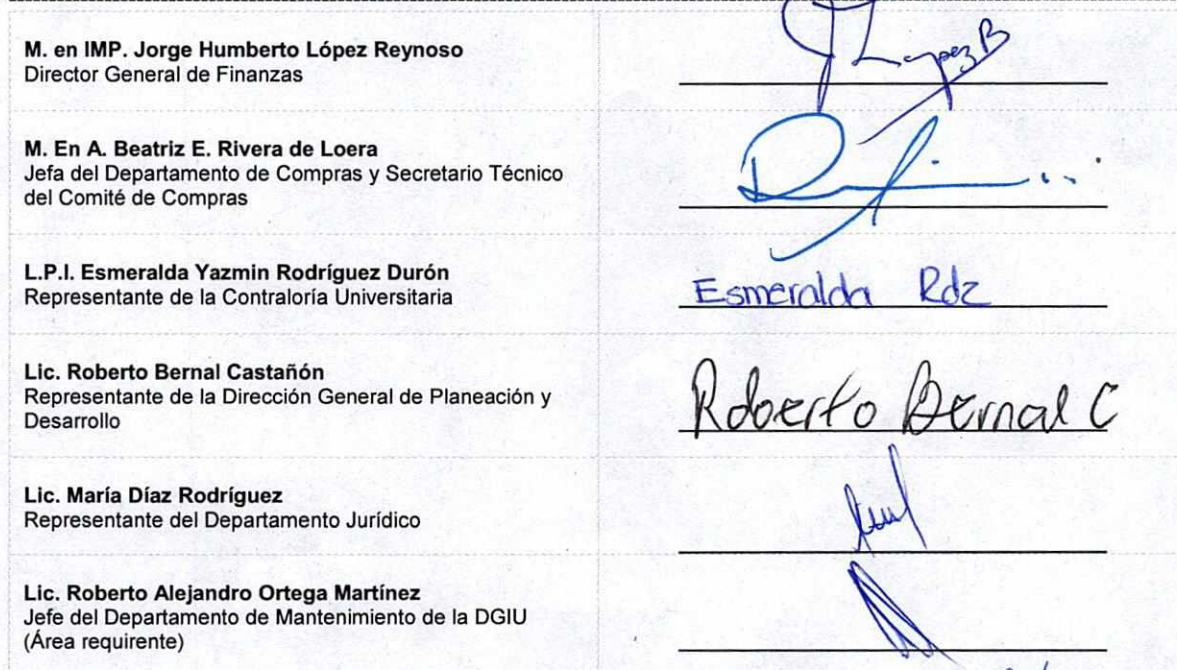 M. en IMP. Jorge Humberto López Reynoso
Director General de Finanzas
M. En A. Beatriz E. Rivera de Loera
Jefa del Departamento de Compras y Secretario Técnico
del Comité de Compras
L.P.I. Esmeralda Yazmin Rodríguez Durón
Representante de la Contraloría Universitaria
Esmeralda Rdz
Lic. Roberto Bernal Castañón
Representante de la Dirección General de Planeación y
Desarrollo
Roberto Bernal C
Lic. María Díaz Rodríguez
Representante del Departamento Jurídico
Lic. Roberto Alejandro Ortega Martínez
Jefe del Departamento de Mantenimiento de la DGIU
(Área requirente)